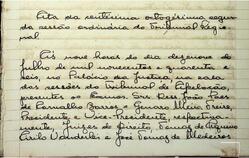 Ata da centésima octogésima segun
da sessão ordinária do Tribunal Regio
nal.
Às nove horas do dia dezenove de
julho de mil novecentos e quarenta e
seis, no Palácio da Justiça, na sala
das sessões do Tribunal de Apelação,
presentes os Exmos. Snrs. Drs. João Paes
de Carvalho Barros, Genaro Meio Freire,
Presidente e Vice-Presidente, respectiva-
mente, Juizes de Direito, Tomaz de Aquino
Carlo Vanderlei e José Tomaz de Medeiros